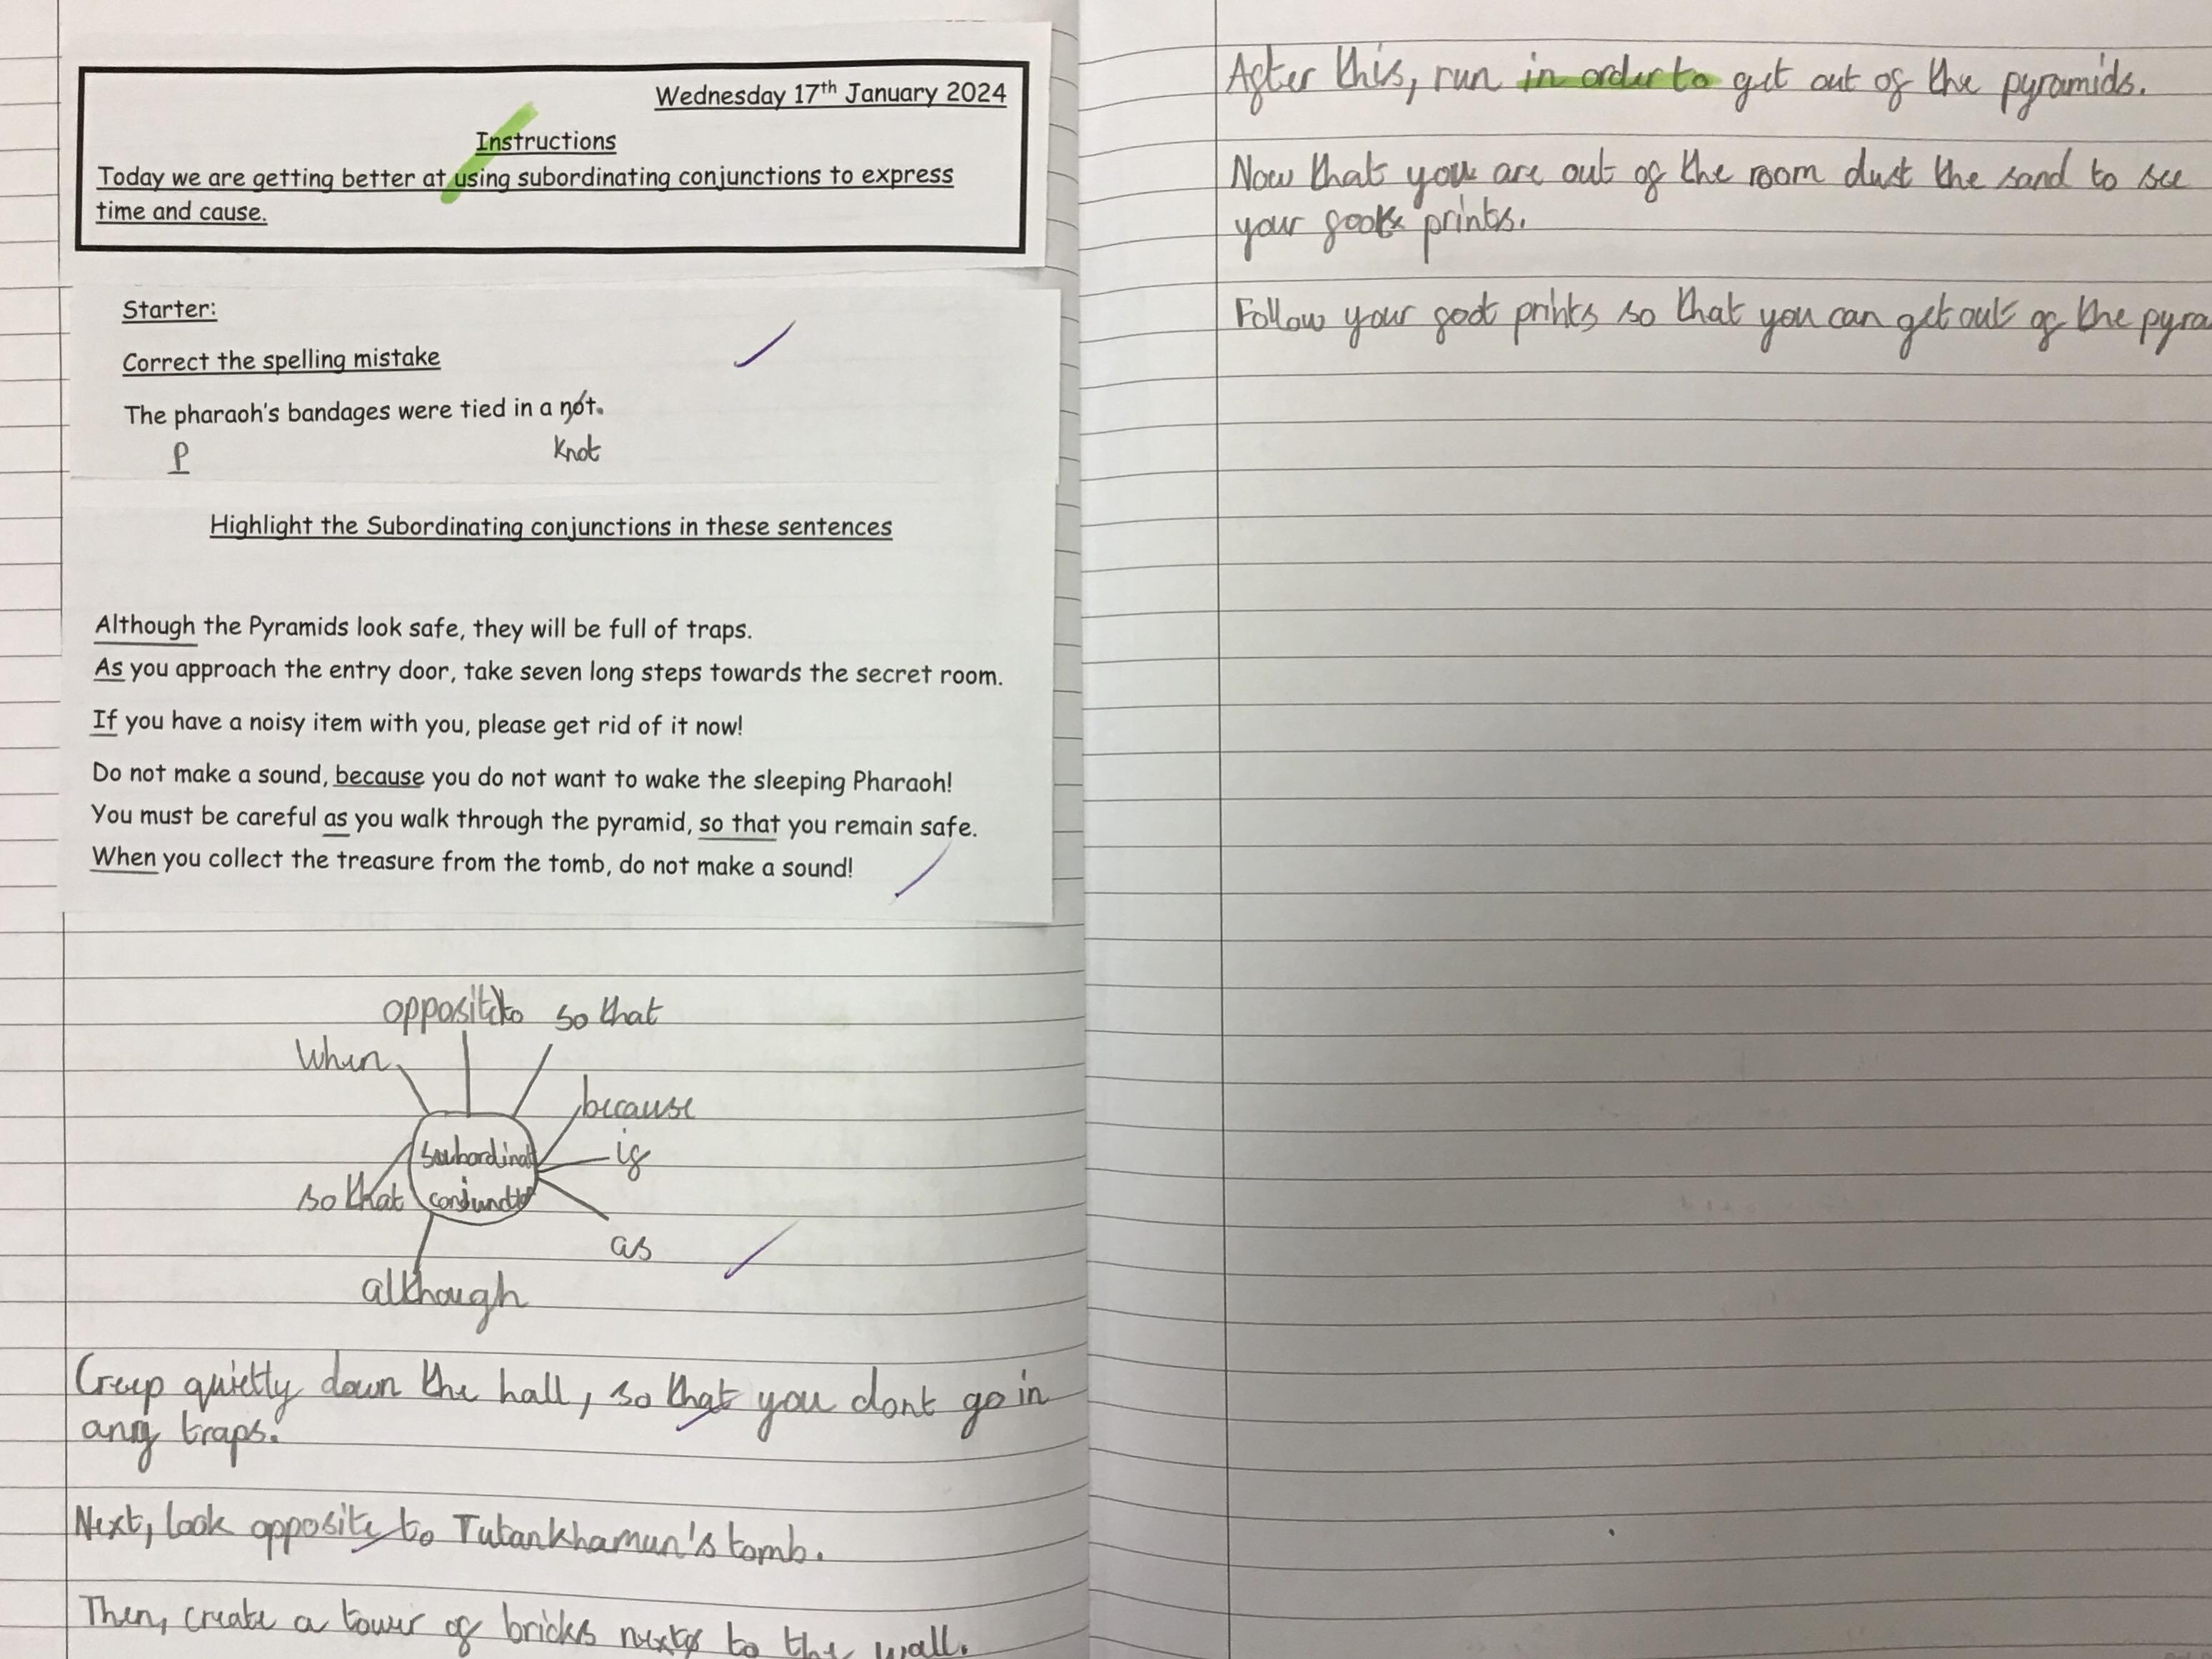 Wednesday 17th January 2024
Instructions
Today we are getting better at using subordinating conjunctions to express
time and cause.
Starter:
Correct the spelling mistake
The pharaoh's bandages were tied in a not.
P
Knot
Highlight the Subordinating conjunctions in these sentences
Although the Pyramids look safe, they will be full of traps.
As you approach the entry door, take seven long steps towards the secret room.
If you have a noisy item with you, please get rid of it now!
Do not make a sound, because you do not want to wake the sleeping Pharaoh!
You must be careful as you walk through the pyramid, so that you remain safe.
When you collect the treasure from the tomb, do not make a sound!
opposite to
so that
When
because
if
Subordinat
so that
as
although
Creep quietly down the hall, so that you dont go in
any traps.
Next, look opposite to Tutankhamun's tomb.
Then, create a tower of bricks next to the wall.
After this, run in order to get out of the pyramids.
Now that you are out of the room dust the sand to see
your foot prints.
Follow your foot prints so that you can get out of the pyra